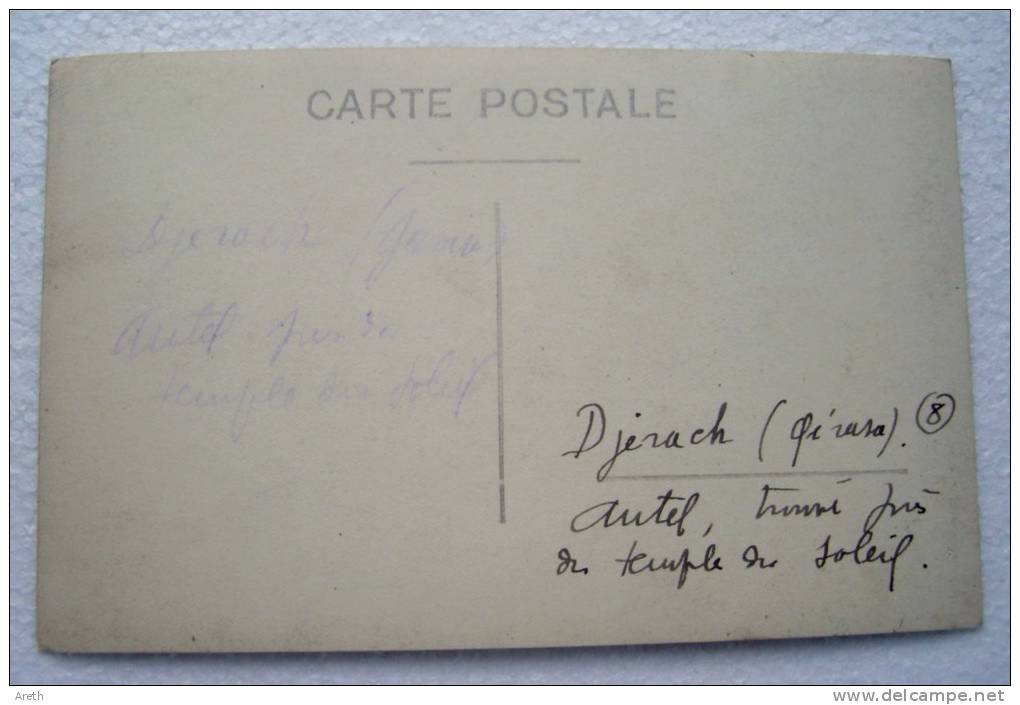 CARTE POSTALE
Djerach
Autel près du
temple du soleil
Djerach (Gérasa). 8
Autel, trouvé près
du temple du soleil.
Areth
www.delcampe.net